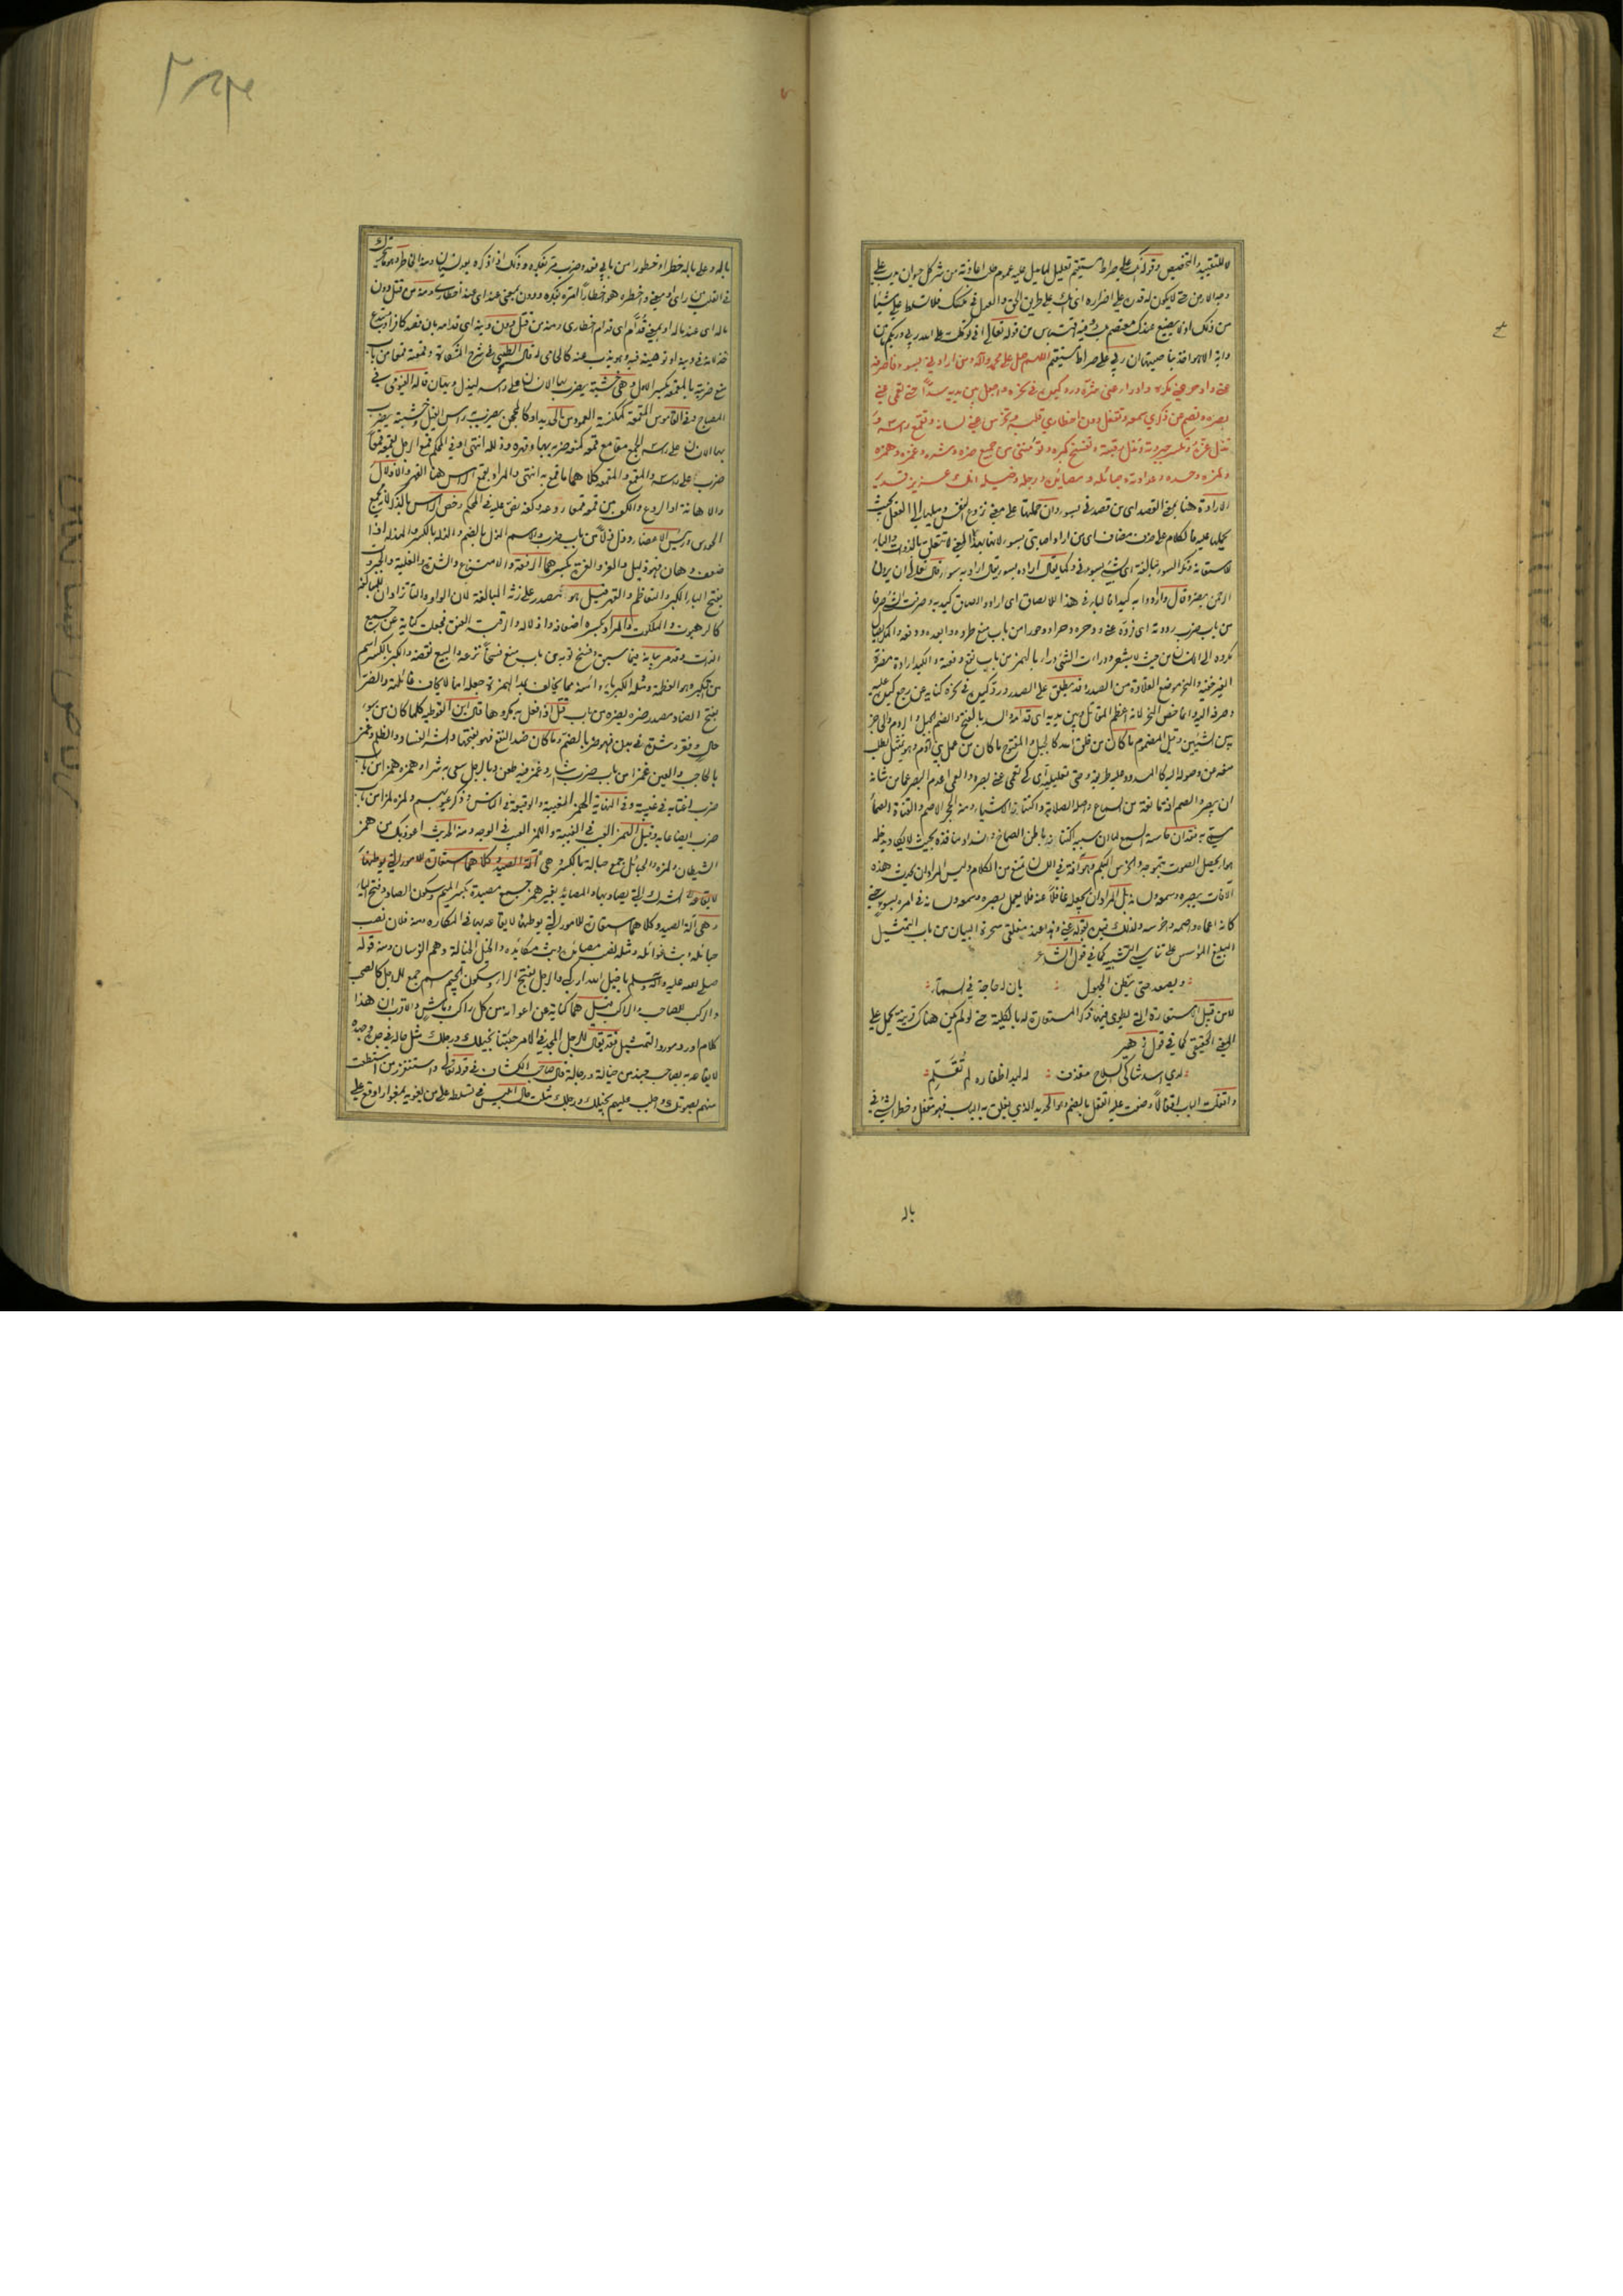 لا للتقييد والتخصيص وقوله انك على صراط مستقيم تعليل لما يدل عليه عموم طلب اعاذته من شر كل حيوان يدب على
وجه الارض حتى لا يكون له قدرة على اضراره اى انك على طريق الحق والعدل فى ملكك فلا تسلط على شيئا
من ذلك اذ لا يضيع عندك معتصم بك وفيه اقتباس من قوله تعالى انى توكلت على الله ربى وربكم ما من
دابة الا هو اخذ بناصيتها ان ربى على صراط مستقيم اللهم صل على محمد وآله ومن ارادنى بسوء فاصرفه
عنى وادحر عنى مكره وادرأ عنى شره ورد كيده فى نحره واجعل بين يديه سدا حتى تعمى عنى
بصره وتصم عن ذكرى سمعه وتقفل دون اخطارى قلبه وتخرس عنى لسانه وتقمع راسه و
تذل عزه وتكسر جبروته وتذل رقبته وتفسخ كبره وتؤمننى من جميع ضره وشره وغمزه وهمزه
ولمزه وحسده وعداوته وحبائله ومصائده ورجله وخيله انك عزيز قدير
الارادة هنا بمعنى القصد اى من قصدنى بسوء وان حملتها على معنى نزوع النفس وميلها الى الفعل بحيث
يحملها عليه فالكلام على حذف مضاف اى من اراد اصابتى بسوء لانها بهذا المعنى لا تتعلق بالذوات والباء
للاستعانة وذكر السوء مبالغة
الرحمن بضر وقال وارادوا به كيدا فالباء فى هذا للالصاق اى اراد الصاق كيد به وصرفت الشئ صرفا
من باب ضرب رددته اى رده عنى ودحره دحرا ودحورا من باب منع طرده وابعده ودفعه والمكر ايصال
المكروه الى الانسان من حيث لا يشعر ودرأت الشئ درءا بالهمز من باب نفع دفعته والكيد ارادة مضرة
الغير خفية والنحر موضع القلادة من الصدر وقد يطلق على الصدر ورد كيده فى نحره كناية عن رجع كيده عليه
وصرفه اليه وانما خص النحر لانه اعظم المقاتل وبين يديه اى قدامه والسد بالفتح والضم الجبل والردم والحاجز
بين الشيئين وقيل المضموم ما كان من خلق الله كالجبل والمفتوح ما كان من عمل بنى آدم وهو تمثيل لطلب
منعه عن وصوله اليه كالمسدود عليه طريقه وحتى تعليلية اى كى تعمى عنى بصره والعمى عدم البصر عما من شانه
ان يبصر والصمم آفة مانعة من السماع واصله الصلابة واكتناز الاشياء ومنه الحجر الاصم والقناة الصماء
سمى به فقدان حاسة السمع لما ان سببه اكتناز باطن الصماخ وانسداد منافذه بحيث لا يكاد يدخله
هواء يحصل الصوت بتموجه والخرس البكم وهو آفة فى اللسان تمنع من الكلام وليس المراد ان يحدث هذه
الآفات ببصره وسمعه ولسانه بل المراد ان يجعله غافلا عنه فلا يعمل بصره وسمعه ولسانه فى امره بسوء حتى
كانه اعماه واصمه واخرسه ولذلك قيد بقوله عنى وهذا عند مفلقى سحرة البيان من باب التمثيل
البليغ المؤسس على تناسى التشبيه كما فى قول الشاعر
ويصعد حتى يظن الجهول : بان له حاجة فى السماء
لا من قبيل الاستعارة التى يطوى فيها ذكر المستعار له بالكلية حتى لو لم يكن هناك قرينة يحمل على
المعنى الحقيقى كما فى قول زهير
لدى اسد شاكى السلاح مقذف : له لبد اظفاره لم تقلم
واقفلت الباب اقفالا وضعت عليه القفل بالضم وهو الحديد الذى يغلق به الباب فهو مقفل وخطر الشئ فى
باله
باله وعلى باله خطرا وخطورا من بابى قعد وضرب مر بفكره وذلك اذا ذكره بعد نسيان ومنه الخاطر وهو ما يتحرك
فى القلب من راى او معنى واخطره هو اخطارا
باله اى عند باله او بمعنى قدام اى قدام اخطارى ومنه من قتل دون دينه اى قدامه بان قصد كافر او مبتدع
خذلانه فى دينه او توهينه فيه وهو يذب عنه كالحامى له قال الطيبى فى شرح المشكاة وقمعته قمعا من باب
منع ضربته بالمقمعة بكسر الاول وهى خشبة يضرب بها الانسان على راسه ليذل ويهان قاله الفيومى فى
المصباح وفى القاموس المقمعة كمكنسة العمود من الحديد او كالمحجن يضرب به راس الفيل وخشبة يضرب
بها الانسان على راسه الجمع مقامع قمعه كمنعه ضربه بها وقهره وذلله انتهى وفى المحكم قمع الرجل يقمعه قمعا
ضرب على راسه والمقمع والمقمعة كلاهما ما قمع به انتهى والمراد بقمع الراس هنا القهر والاذلال
والاهانة او الردع والكف من قمعه قمعا ردعه وكفه نص عليه فى المحكم وخص الراس بالذكر لانه مجمع
الحواس ورئيس الاعضاء وذل ذلا من باب ضرب والاسم الذل بالضم والذلة بالكسر والمذلة اذا
ضعف وهان فهو ذليل والعز والعزة بكسرهما الرفعة والامتناع والشدة والغلبة والجبروت
بفتح الباء الكبر والتعاظم والقهر قيل هو مصدر على زنة المبالغة لان الواو والتاء زادان للمبالغة
كالرهبوت والملكوت والمراد بكسره اضعافه واذلاله والرقبة العنق فجعلت كناية عن جميع
الذات وقد مر بيانه فيما سبق وفسخ ثوبه من باب منع فسخا نزعه والبيع نقضه والكبر بالكسر اسم
من التكبر وهو العظمة
بفتح الضاد مصدر ضره يضره من باب قتل اذا فعل به مكروها قال ابن القوطية كلما كان من سوء
حال وفقر وشدة فى بدن فهو ضر بالضم وما كان ضد النفع فهو بفتحها والشر الفساد والظلم وغمز
بالحاجب والعين غمزا من باب ضرب اشار وغمز فيه طعن وبالرجل سعى به شرا وهمزه همزا من باب
ضرب اغتابه فى غيبته وفى النهاية الهمز الغيبة والوقيعة فى الناس وذكر عيوبهم ولمزه لمزا من باب
ضرب ايضا عابه وقيل الهمز العيب فى الغيبة واللمز العيب فى الوجه ومنه الحديث اعوذ بك من همز
الشيطان ولمزه والحبائل جمع حبالة بالكسر وهى آلة الصيد وكلاهما استعارة للامور التى يوطئها
لايقاعه الشرك التى يصاد بها والمصائد بغير همز جمع مصيدة بكسر الميم وسكون الصاد وفتح الياء
وهى آلة الصيد وكلاهما استعارة للامور التى يوطئها لايقاعه بها فى المكاره ومنه فلان نصب
حبائله وبث غوائله ومثله نصب مصائده وبث مكائده والخيل الخيالة وهم الفرسان ومنه قوله
صلى الله عليه وآله وسلم يا خيل الله اركبى والرجل بفتح الراء وسكون الجيم اسم جمع للراجل كالصحب
والركب للصاحب والراكب قيل هما كناية عن اعوانه من كل راكب وماش والاقرب ان هذا
كلام اورد مورد التمثيل فقد يقال للرجل المجد فى الامر جئتنا بخيلك ورجلك مثل حاله فى جده
لايقاعه به بصاحب جند من خيالة ورجالة قال صاحب الكشاف فى قوله تعالى واستفزز من استطعت
منهم بصوتك واجلب عليهم بخيلك ورجلك مثلت حال ابليس فى تسلطه على من يغويه بمغوار اوقع على